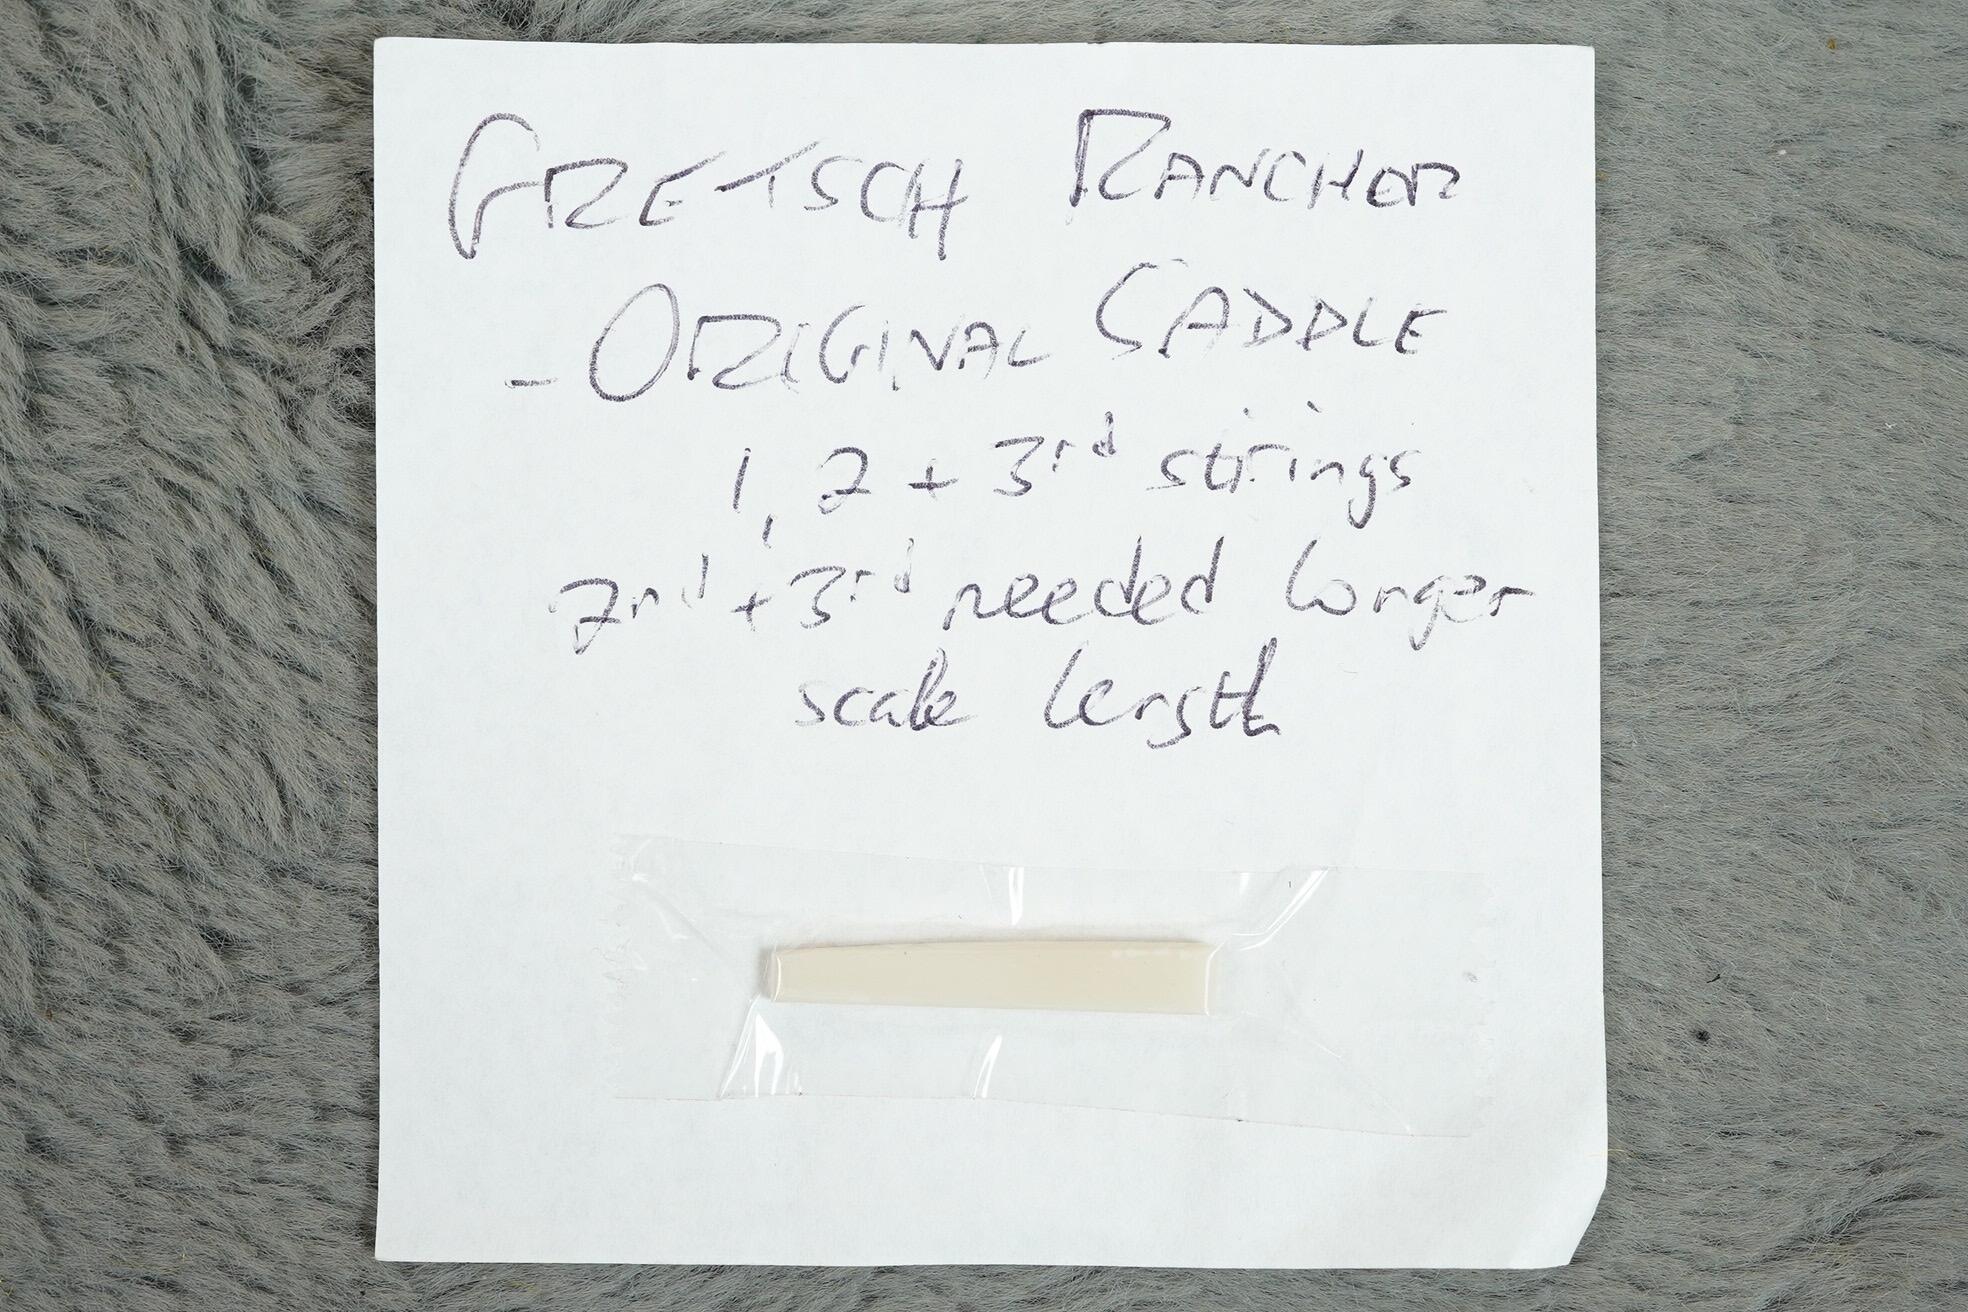 GRETSCH RANCHER
- ORIGINAL SADDLE
1, 2 + 3rd strings
2nd + 3rd needed longer
scale length